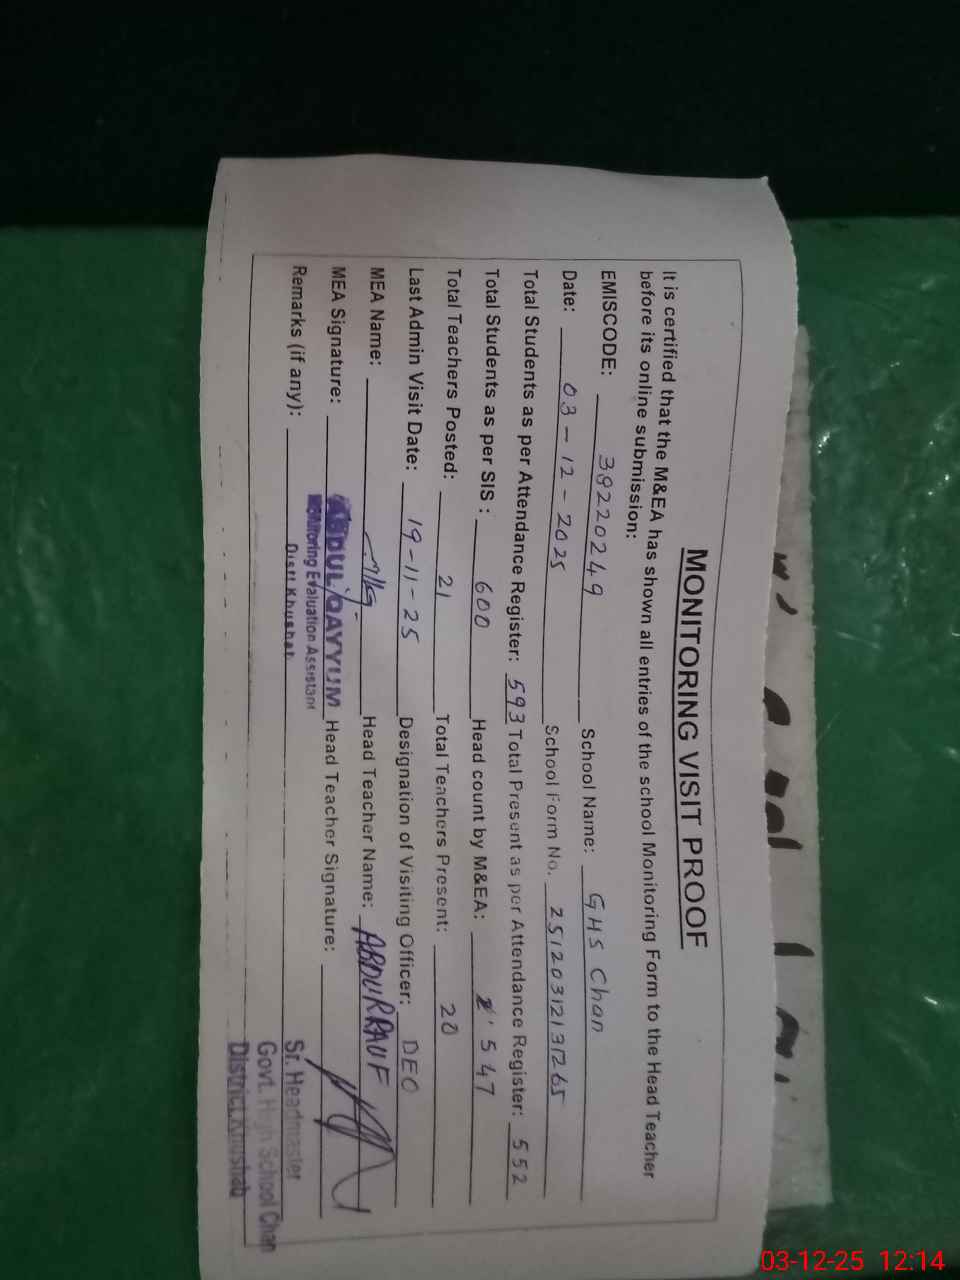 MONITORING VISIT PROOF
It is certified that the M&EA has shown all entries of the school Monitoring Form to the Head Teacher
before its online submission:
EMISCODE: 38220249 School Name: GHS Chan
Date: 03-12-2025 School Form No. 25120312131265
Total Students as per Attendance Register: 593 Total Present as per Attendance Register: 552
Total Students as per SIS : 600 Head count by M&EA: 547
Total Teachers Posted: 21 Total Teachers Present: 20
Last Admin Visit Date: 19-11-25 Designation of Visiting Officer: DEO
MEA Name: Head Teacher Name: ABDUR RAUF
MEA Signature: ABDUL QAYYUM Head Teacher Signature:
Monitoring Evaluation Assistant
Remarks (if any): Distt Khushab
Sr. Headmaster
Govt. High School Chan
District Khushab
03-12-25 12:14